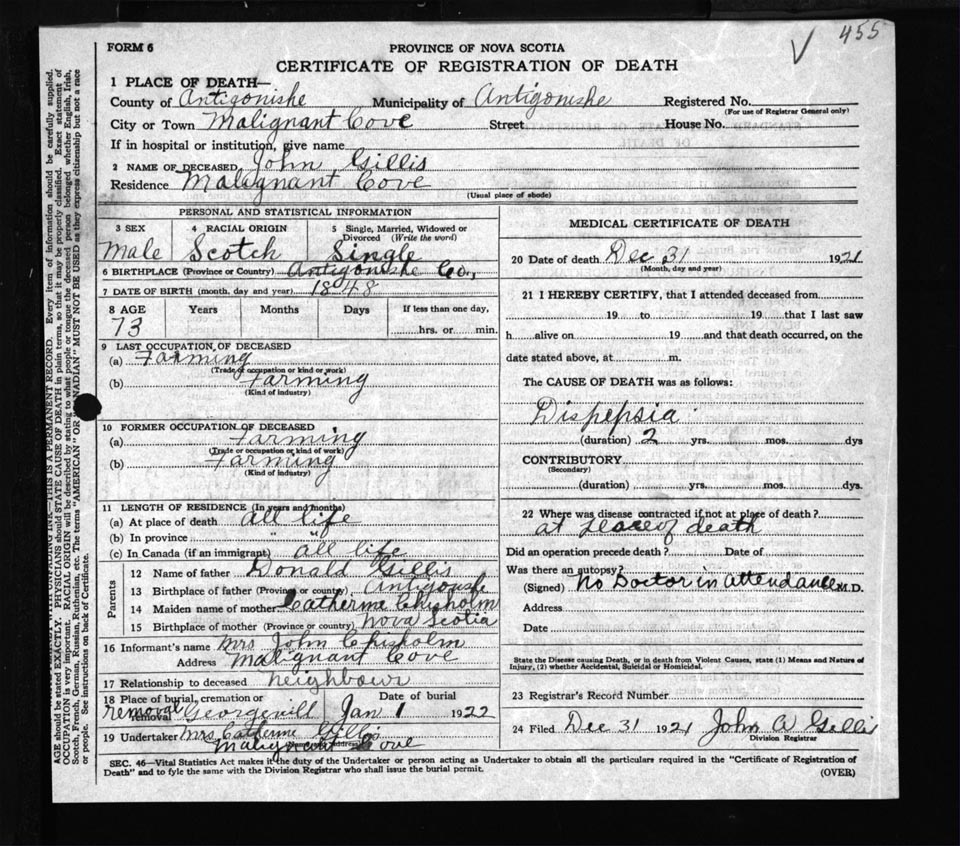 455
FORM 6
PROVINCE OF NOVA SCOTIA
CERTIFICATE OF REGISTRATION OF DEATH
1 PLACE OF DEATH—
County of Antigonishe Municipality of Antigonishe Registered No.
(For use of Registrar General only)
City or Town Malignant Cove Street House No.
If in hospital or institution, give name
2 NAME OF DECEASED John Gillis
Residence Malignant Cove
(Usual place of abode)
PERSONAL AND STATISTICAL INFORMATION
3 SEX 4 RACIAL ORIGIN 5 Single, Married, Widowed or
Divorced (Write the word)
Male Scotch Single
6 BIRTHPLACE (Province or Country) Antigonishe Co.,
7 DATE OF BIRTH (month, day and year) 1848
8 AGE Years Months Days If less than one day,
73 hrs. or min.
9 LAST OCCUPATION OF DECEASED
(a) Farming
(Trade or occupation or kind or work)
(b) Farming
(Kind of industry)
10 FORMER OCCUPATION OF DECEASED
(a) Farming
(Trade or occupation or kind of work)
(b) Farming
(Kind of industry)
11 LENGTH OF RESIDENCE (In years and months)
(a) At place of death all life
(b) In province " "
(c) In Canada (if an immigrant) all life
Parents
12 Name of father Donald Gillis
13 Birthplace of father (Province or country) Antigonishe
14 Maiden name of mother Catherine Chisholm
15 Birthplace of mother (Province or country) Nova Scotia
16 Informant's name Mrs John Chisholm
Address Malignant Cove
17 Relationship to deceased neighbour
18 Place of burial, cremation or Date of burial
removal Georgevill Jan 1 1922
19 Undertaker Mrs Catherine Gillis
Malignant Cove
MEDICAL CERTIFICATE OF DEATH
20 Date of death Dec 31 1921
(Month, day and year)
21 I HEREBY CERTIFY, that I attended deceased from
19 to 19 that I last saw
h alive on 19 and that death occurred, on the
date stated above, at m.
The CAUSE OF DEATH was as follows:
Dispepsia
(duration) 2 yrs. mos. dys
CONTRIBUTORY
(Secondary)
(duration) yrs. mos. dys.
22 Where was disease contracted if not at place of death?
at place of death
Did an operation precede death? Date of
Was there an autopsy?
(Signed) No Doctor in attendance M.D.
Address
Date
State the Disease causing Death, or in death from Violent Causes, state (1) Means and Nature of
Injury, (2) whether Accidental, Suicidal or Homicidal.
23 Registrar's Record Number
24 Filed Dec 31 1921 John A Gillis
Division Registrar
SEC. 46—Vital Statistics Act makes it the duty of the Undertaker or person acting as Undertaker to obtain all the particulars required in the "Certificate of Registration of
Death" and to fyle the same with the Division Registrar who shall issue the burial permit.
(OVER)
UNFADING INK—THIS IS A PERMANENT RECORD. Every item of information should be carefully supplied.
AGE should be stated EXACTLY. PHYSICIANS should STATE CAUSE OF DEATH in plain terms, so that it may be properly classified. Exact statement of
OCCUPATION is very important. RACIAL ORIGIN will be described by stating to what people or tongue the deceased person belonged whether English, Irish,
Scotch, French, German, Russian, Ruthenian, etc. The terms "AMERICAN" OR "CANADIAN" MUST NOT BE USED as they express citizenship but not a race
or people. See instructions on back of Certificate.